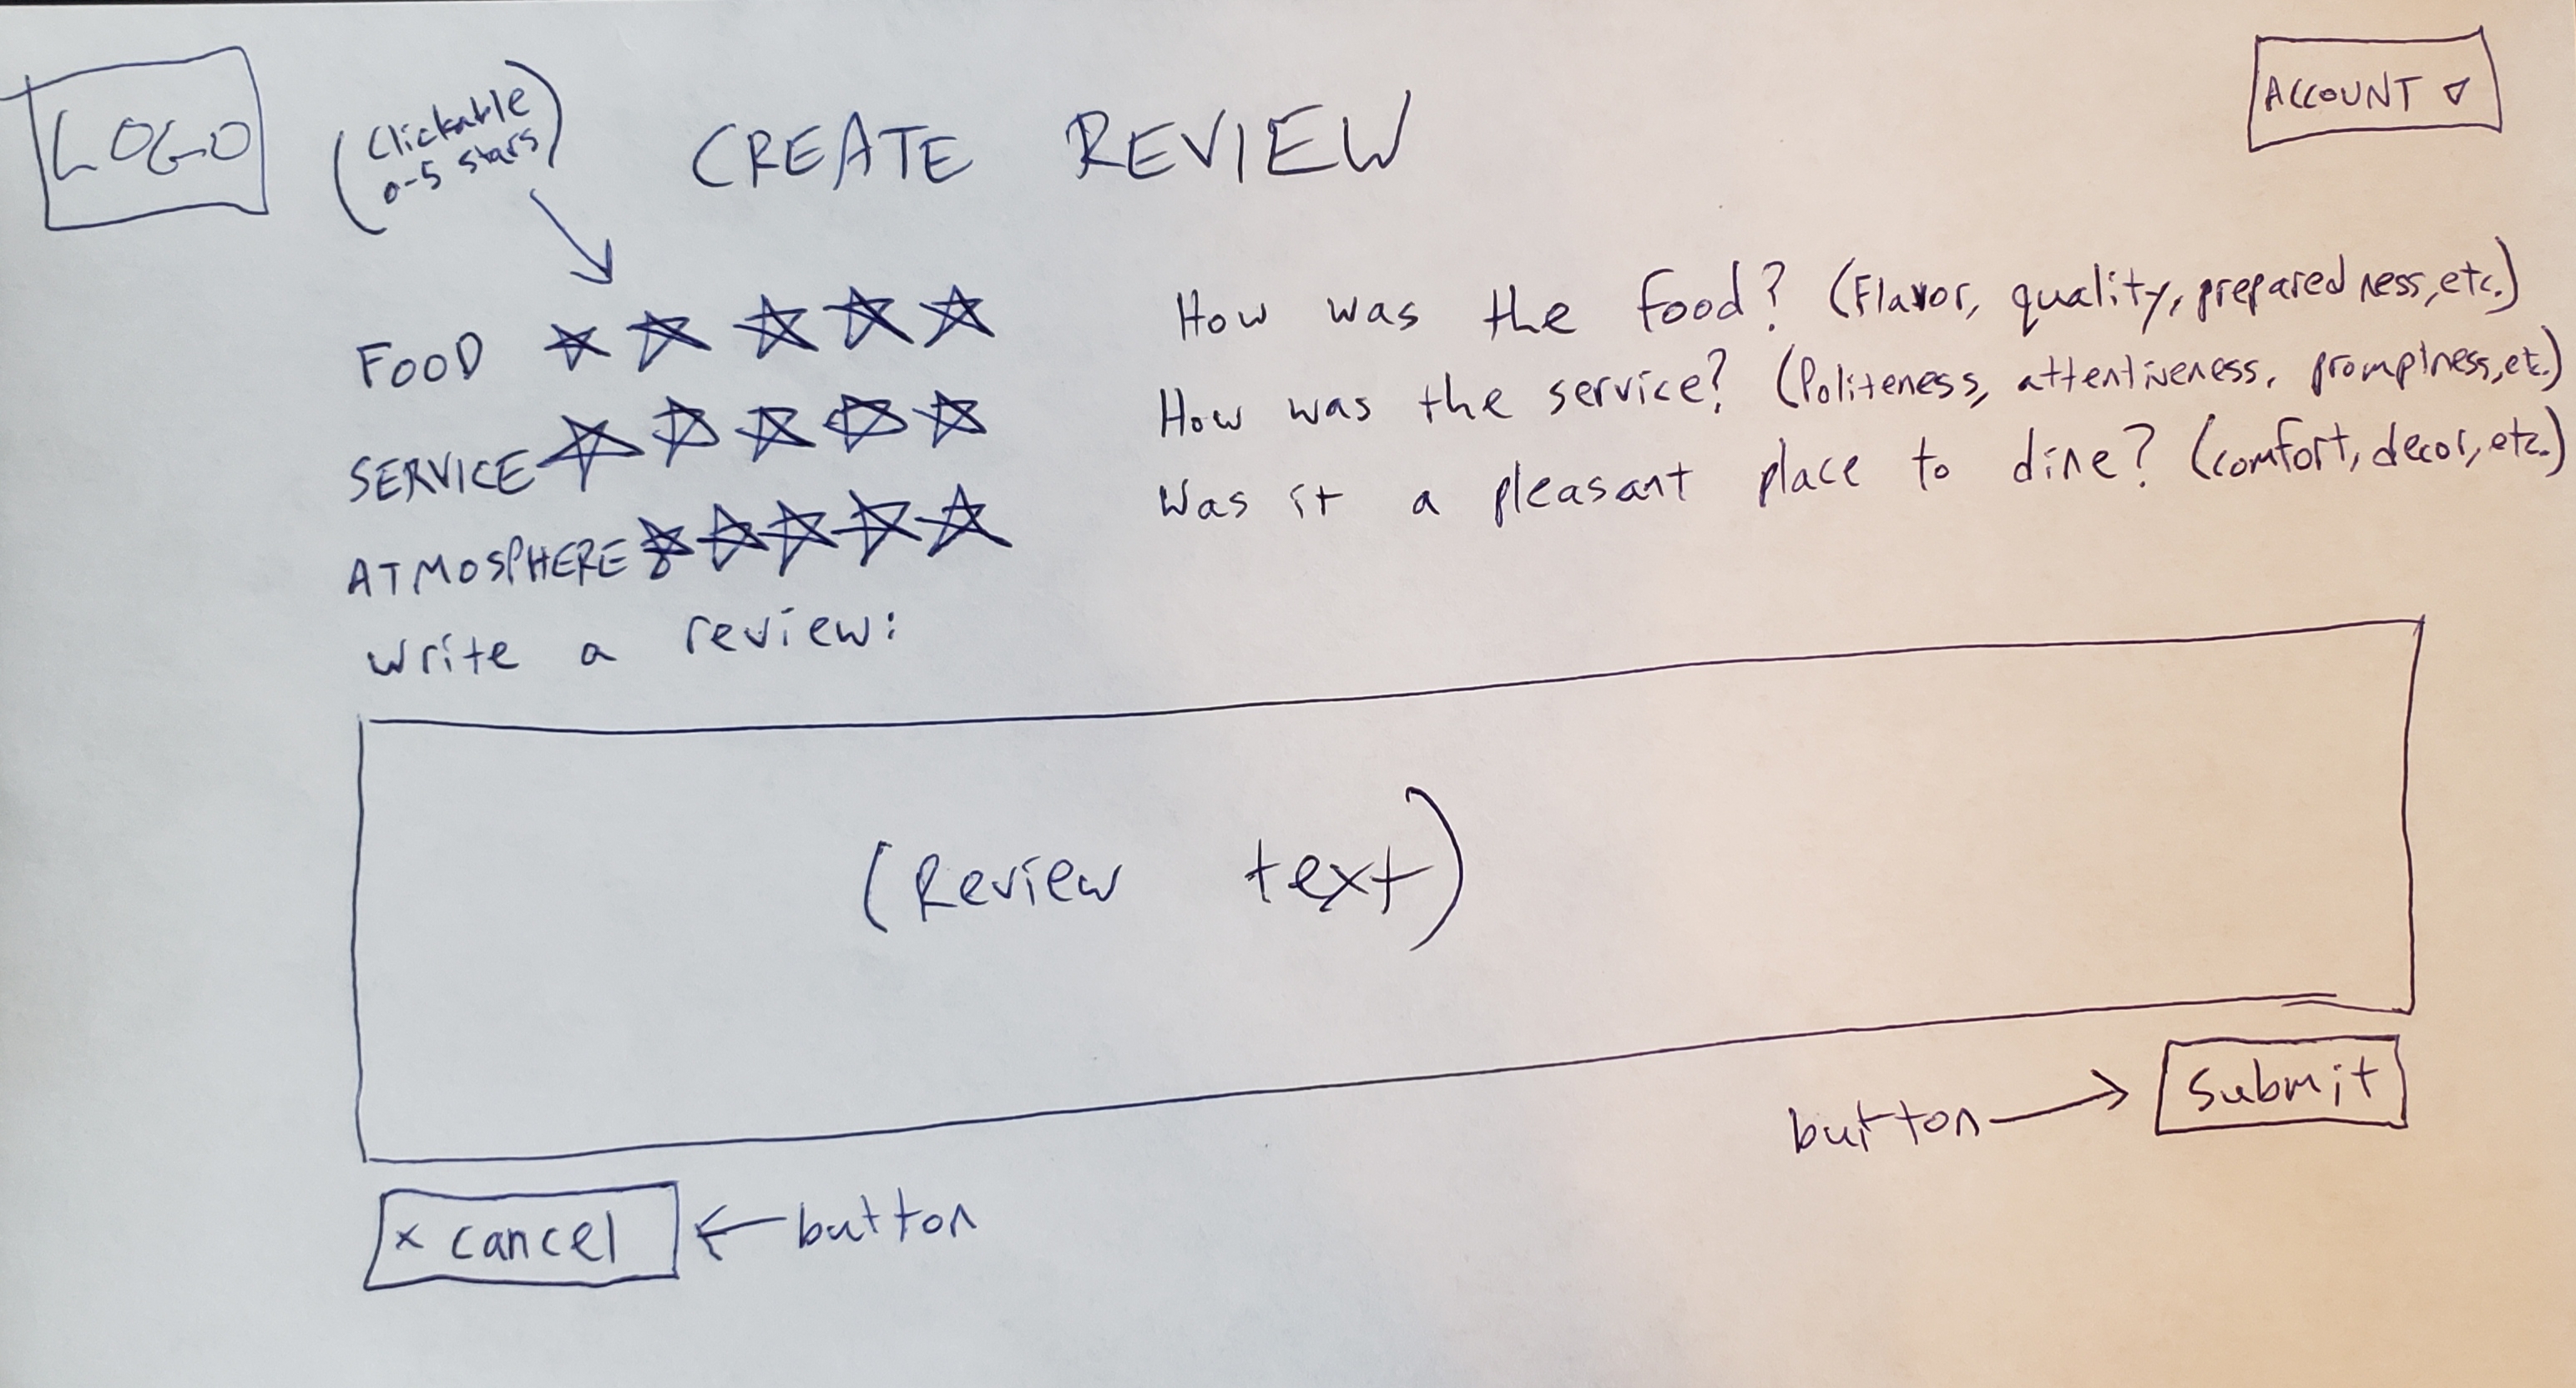 LOGO
(Clickable
0-5 stars)
CREATE REVIEW
ACCOUNT
FOOD
How was the food? (Flavor, quality, preparedness, etc.)
SERVICE
How was the service? (Politeness, attentiveness, promptness, etc.)
ATMOSPHERE
Was it a pleasant place to dine? (comfort, decor, etc.)
write a review:
(Review text)
button
Submit
x cancel
button